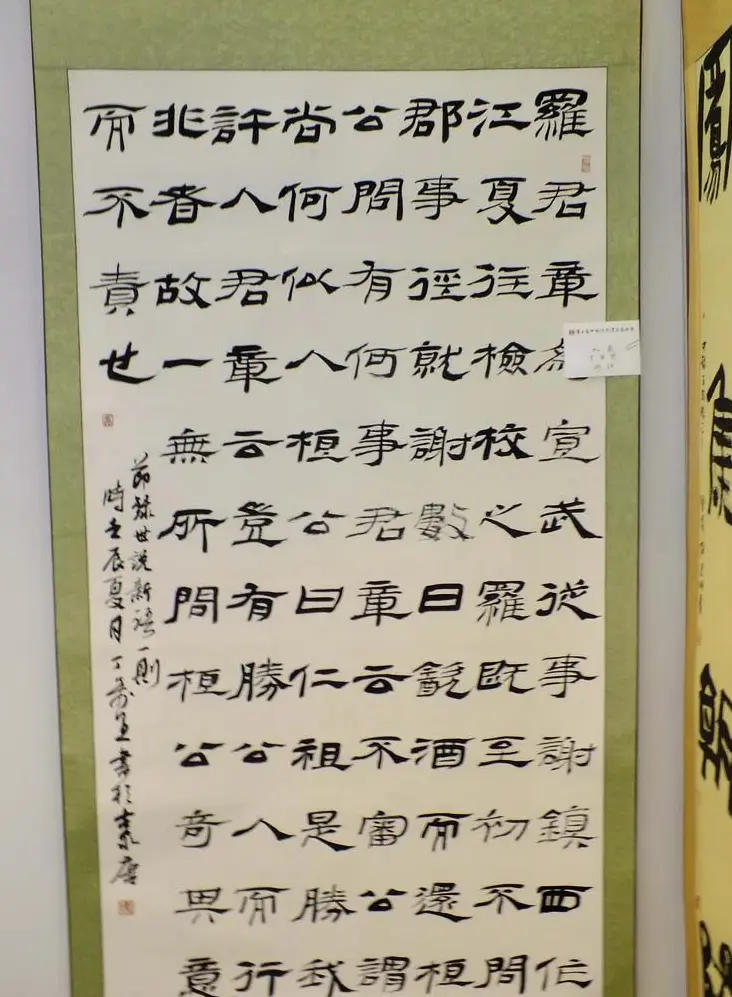 羅君章為宣武從事謝鎮西作
江夏往檢校之羅既至初不問
郡事徑就謝數日飲酒而還桓
公問有何事君章云不審公謂
尚何似人桓公曰仁祖是勝我
許人君章云豈有勝公人而行
非者故一無所問桓公奇其意
而不責也
節錄世說新語一則
時壬辰夏月丁書於